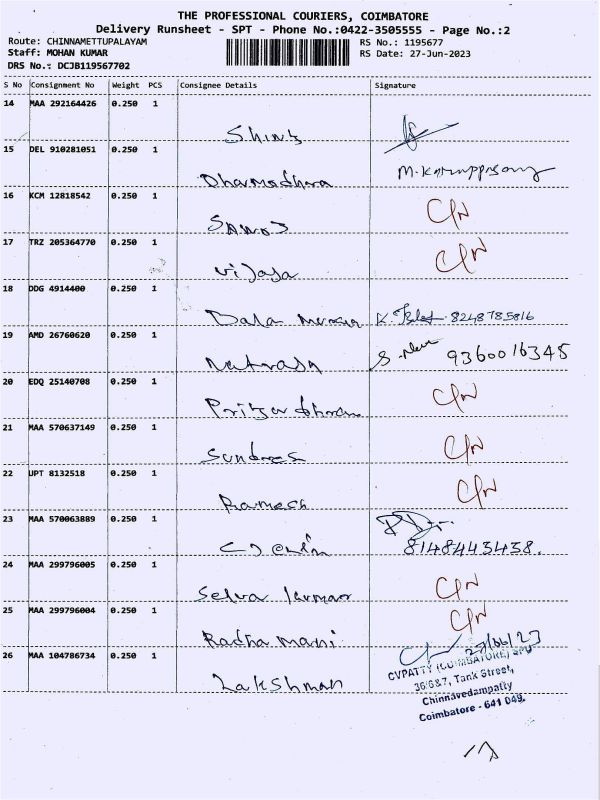 THE PROFESSIONAL COURIERS, COIMBATORE
Delivery Runsheet - SPT - Phone No.:0422-3505555 - Page No.:2
Route: CHINNAMETTUPALAYAM RS No.: 1195677
Staff: MOHAN KUMAR RS Date: 27-Jun-2023
DRS No.: DCJB119567702
S No Consignment No Weight PCS Consignee Details Signature
14 MAA 292164426 0.250 1
15 DEL 910281051 0.250 1 Dharmadhara
16 KCM 12818542 0.250 1
17 TRZ 205364770 0.250 1 vijaya
18 DDG 4914400 0.250 1 8248785816
19 AMD 26760620 0.250 1 9360016345
20 EDQ 25140708 0.250 1
21 MAA 570637149 0.250 1
22 UPT 8132518 0.250 1 Ramesh
23 MAA 570063889 0.250 1 8148443438.
24 MAA 299796005 0.250 1 Selva kumar
25 MAA 299796004 0.250 1 Radha mani
26 MAA 104786734 0.250 1 Lakshman 27/06/23
CVPATTY (COIMBATORE)
36/6&7, Tank Street,
Chinnavedampatty
Coimbatore - 641 049.